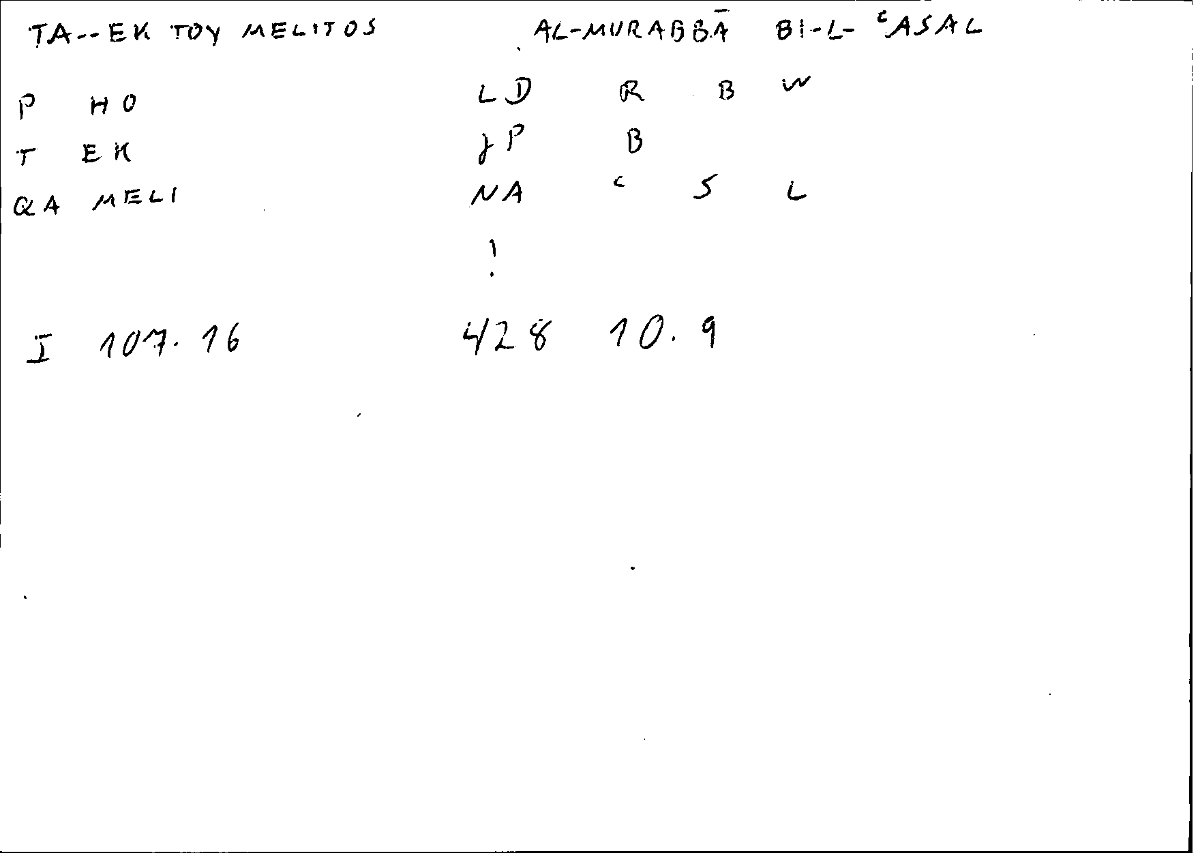 TA--EK TOY MELITOS AL-MURABBĀ BI-L-ʿASAL
P HO LD R B W
T EK JP B
QA MELI NA ʿ S L
!
I 107.16 428 10.9